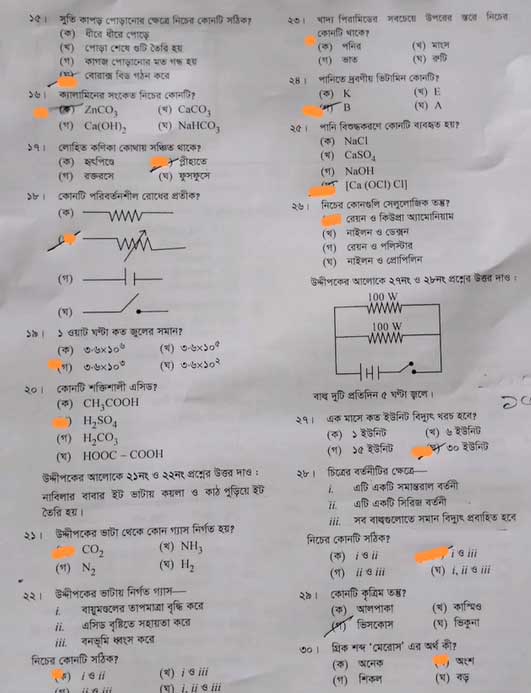 ১৫। সুতি কাপড় পোড়ানোর ক্ষেত্রে নিচের কোনটি সঠিক?
(ক) ধীরে ধীরে পোড়ে
(খ) পোড়া শেষে গুটি তৈরি হয়
(গ) কাগজ পোড়ানোর মত গন্ধ হয়
বোরাক্স বিড গঠন করে
১৬। ক্যালামিনের সংকেত নিচের কোনটি?
(ক) ZnCO₃ (খ) CaCO₃
(গ) Ca(OH)₂ (ঘ) NaHCO₃
১৭। লোহিত কণিকা কোথায় সঞ্চিত থাকে?
(ক) হৃৎপিণ্ডে প্লীহাতে
(গ) রক্তরসে (ঘ) ফুসফুসে
১৮। কোনটি পরিবর্তনশীল রোধের প্রতীক?
(ক)
(গ)
(ঘ)
১৯। ১ ওয়াট ঘণ্টা কত জুলের সমান?
(ক) ৩·৬×১০⁶ (খ) ৩·৬×১০⁵
(গ) ৩·৬×১০³ (ঘ) ৩·৬×১০²
২০। কোনটি শক্তিশালী এসিড?
(ক) CH₃COOH
H₂SO₄
(গ) H₂CO₃
(ঘ) HOOC – COOH
উদ্দীপকের আলোকে ২১নং ও ২২নং প্রশ্নের উত্তর দাও :
নাবিলার বাবার ইট ভাটায় কয়লা ও কাঠ পুড়িয়ে ইট
তৈরি হয়।
২১। উদ্দীপকের ভাটা থেকে কোন গ্যাস নির্গত হয়?
CO₂ (খ) NH₃
(গ) N₂ (ঘ) H₂
২২। উদ্দীপকের ভাটায় নির্গত গ্যাস—
i. বায়ুমণ্ডলের তাপমাত্রা বৃদ্ধি করে
ii. এসিড বৃষ্টিতে সহায়তা করে
iii. বনভূমি ধ্বংস করে
নিচের কোনটি সঠিক?
(ক) i ও ii (খ) i ও iii
(গ) ii ও iii (ঘ) i, ii ও iii
২৩। খাদ্য পিরামিডের সবচেয়ে উপরের স্তরে নিচের
কোনটি থাকে?
পনির (খ) মাংস
(গ) ভাত (ঘ) রুটি
২৪। পানিতে দ্রবণীয় ভিটামিন কোনটি?
(ক) K (খ) E
B (ঘ) A
২৫। পানি বিশুদ্ধকরণে কোনটি ব্যবহৃত হয়?
(ক) NaCl
(খ) CaSO₄
(গ) NaOH
[Ca (OCl) Cl]
২৬। নিচের কোনগুলি সেলুলোজিক তন্তু?
রেয়ন ও কিউপ্রা অ্যামোনিয়াম
(খ) নাইলন ও ডেক্রন
(গ) রেয়ন ও পলিস্টার
(ঘ) নাইলন ও প্রোপিলিন
উদ্দীপকের আলোকে ২৭নং ও ২৮নং প্রশ্নের উত্তর দাও :
100 W
100 W
বাল্ব দুটি প্রতিদিন ৫ ঘণ্টা জ্বলে।
২৭। এক মাসে কত ইউনিট বিদ্যুৎ খরচ হবে?
(ক) ১ ইউনিট (খ) ৬ ইউনিট
(গ) ১৫ ইউনিট (ঘ) ৩০ ইউনিট
২৮। চিত্রের বর্তনীটির ক্ষেত্রে—
i. এটি একটি সমান্তরাল বর্তনী
ii. এটি একটি সিরিজ বর্তনী
iii. সব বাল্বগুলোতে সমান বিদ্যুৎ প্রবাহিত হবে
নিচের কোনটি সঠিক?
(ক) i ও ii i ও iii
(গ) ii ও iii (ঘ) i, ii ও iii
২৯। কোনটি কৃত্রিম তন্তু?
(ক) আলপাকা (খ) কাশ্মিও
(গ) ভিসকোস (ঘ) ভিকুনা
৩০। গ্রিক শব্দ ‘মেরোস’ এর অর্থ কী?
(ক) অনেক অংশ
(গ) শিকল (ঘ) বড়